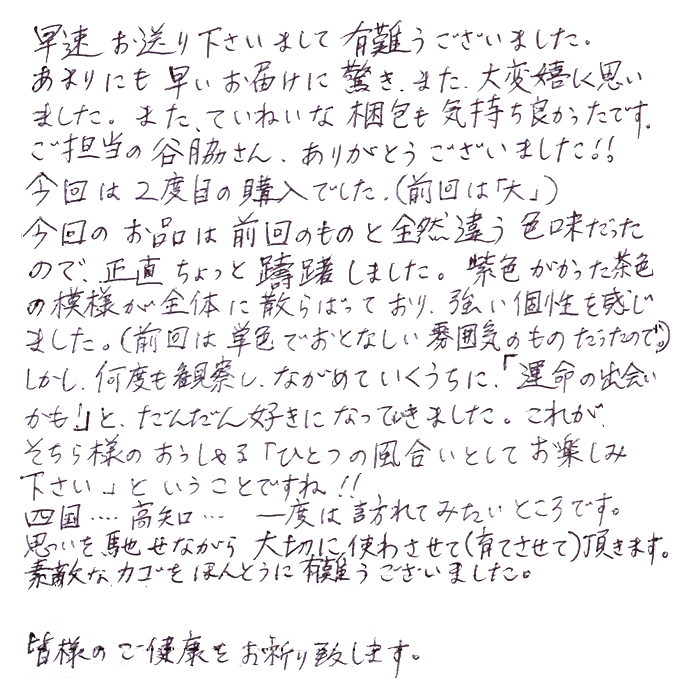 早速 お送り下さいまして 有難うございました。
あまりにも 早い お届けに 驚き、また、大変嬉しく思い
ました。また、ていねいな 梱包も 気持ち良かったです。
ご担当の 谷脇さん、ありがとうございました!!
今回は 2度目の 購入でした。(前回は「大」)
今回の お品は 前回のものと 全然違う 色味だった
ので、正直 ちょっと 躊躇しました。紫色がかった茶色
の模様が 全体に 散らばっており、強い個性を感じ
ました。(前回は 単色で おとなしい 雰囲気のものだったので。)
しかし、何度も観察し、ながめていくうちに、「運命の出会い
かも!」と、だんだん 好きに なってきました。これが、
そちら様の おっしゃる「ひとつの 風合いとして お楽しみ
下さい」と いうことですね!!
四国‥‥ 高知‥‥ 一度は 訪れてみたい ところです。
思いを 馳せながら 大切に 使わさせて(育てさせて)頂きます。
素敵な カゴを ほんとうに 有難うございました。
皆様の ご健康を お祈り致します。